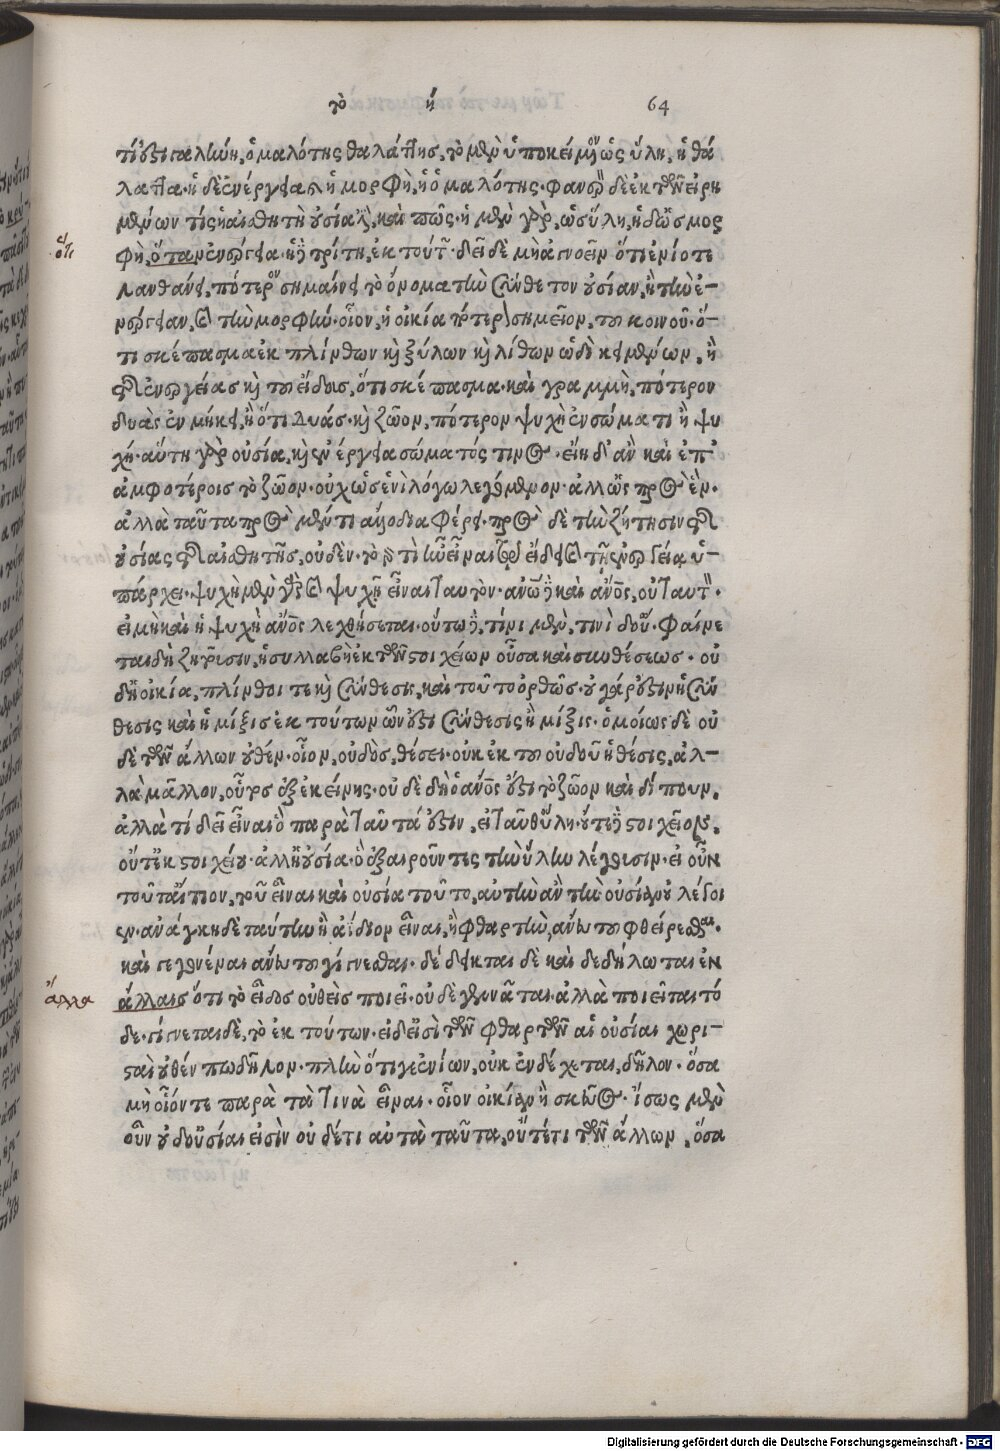 τὸ ή 64
τί ὄξι γαλήνη, ὁμαλότης θαλάττης, τὸ μὲν ὑποκείμενον ὡς ὕλη, ἡ θά
λαττα· ἡ δὲ ἐνέργεια καὶ ἡ μορφὴ, ἡ ὁμαλότης· φανερὸν δὲ ἐκ τῶν εἰρη
μένων τίς ἡ αἰσθητὴ οὐσία ἐστὶ, καὶ πῶς· ἡ μὲν γὰρ, ὡς ὕλη, ἡ δ' ὡς μορ
φὴ, ὅταν ἐνέργεια· ἡ δὲ τρίτη, ἐκ τούτων· δεῖ δὲ μὴ ἀγνοεῖν ὅτι ἐνίοτε
λανθάνει, πότερον σημαίνει τὸ ὄνομα τὴν σύνθετον οὐσίαν, ἢ τὴν ἐ-
νέργειαν, καὶ τὴν μορφήν· οἷον, ἡ οἰκία πότερον σημεῖον, τοῦ κοινοῦ· ὅ-
τι σκέπασμα ἐκ πλίνθων καὶ ξύλων καὶ λίθων ὡδὶ κειμένων, ἢ
τῆς ἐνεργείας καὶ τοῦ εἴδους, ὅτι σκέπασμα· καὶ γραμμὴ, πότερον
δυὰς ἐν μήκει, ἢ ὅτι δυάς· καὶ ζῶον, πότερον ψυχὴ ἐν σώματι ἢ ψυ
χή· αὕτη γὰρ οὐσία, καὶ ἐνέργεια σώματός τινος· εἴη δ' ἂν καὶ ἐπ'
ἀμφοτέροις τὸ ζῶον· οὐχ ὡς ἑνὶ λόγω λεγόμενον· ἀλλ' ὡς πρὸς ἕν·
ἀλλὰ ταῦτα πρὸς μέν τι ἄλλο διαφέρει· πρὸς δὲ τὴν ζήτησιν τῆς
οὐσίας τῆς αἰσθητῆς, οὐδέν· τὸ γὰρ τί ἦν εἶναι τῷ εἴδει καὶ τῇ ἐνεργείᾳ ὑ-
πάρχει· ψυχὴ μὲν γὰρ καὶ ψυχῇ εἶναι ταυτόν· ἀνθρώπῳ δὲ καὶ ἄνθρωπος, οὐ ταυτόν·
εἰ μὴ καὶ ἡ ψυχὴ ἄνθρωπος λεχθήσεται· οὕτω δὲ, τινὶ μὲν, τινὶ δ' οὔ· φαίνε
ται δὴ ζητοῦσιν, ἡ συλλαβὴ ἐκ τῶν στοιχείων οὖσα καὶ συνθέσεως· οὐ
δ' ἡ οἰκία, πλίνθοι τε καὶ σύνθεσις, καὶ τοῦτο ὀρθῶς· οὐ γάρ ἐστιν ἡ σύν
θεσις καὶ ἡ μίξις ἐκ τούτων ὧν ἐστι σύνθεσις ἢ μίξις· ὁμοίως δὲ οὐ
δὲ τῶν ἄλλων οὐθέν· οἷον, οὐδὸς, θέσει· οὐκ ἐκ τοῦ οὐδοῦ ἡ θέσις, ἀλ-
λὰ μᾶλλον, οὗτος ἐξ ἐκείνης· οὐδὲ δὴ ὁ ἄνθρωπος ἐστὶ τὸ ζῶον καὶ δίπουν,
ἀλλὰ τί δεῖ εἶναι ὃ παρὰ ταῦτά ἐστιν, εἰ ταῦθ' ὕλη· οὔτε δὲ στοιχεῖον,
οὔτ' ἐκ στοιχείου· ἀλλ' ἡ οὐσία· ὃ ἐξαιροῦντες τὴν ὕλην λέγουσιν· εἰ οὖν
τοῦτ' αἴτιον, τοῦ εἶναι καὶ οὐσία τοῦτο, αὐτὴν ἂν τὴν οὐσίαν οὐ λέγοι
εν· ἀνάγκη δὲ ταύτην ἢ ἀΐδιον εἶναι, ἢ φθαρτὴν, ἄνευ τοῦ φθείρεσθαι·
καὶ γεγονέναι ἄνευ τοῦ γίγνεσθαι· δέδεικται δὲ καὶ δεδήλωται ἐν
ἄλλοις ὅτι τὸ εἶδος οὐθεὶς ποιεῖ· οὐδὲ γεννᾶται· ἀλλὰ ποιεῖται τό
δε· γίγνεται δὲ, τὸ ἐκ τούτων· εἰ δ' εἰσὶ τῶν φθαρτῶν αἱ οὐσίαι χωρι-
σταὶ οὐθέν πω δῆλον· πλὴν ὅτι γ' ἐνίων, οὐκ ἐνδέχεται, δῆλον· ὅσα
μὴ οἷόν τε παρὰ τὰ τινὰ εἶναι· οἷον οἰκίαν ἢ σκεῦος· ἴσως μὲν
οὖν οὐδ' οὐσίαι εἰσὶν οὐδέ τι αὐτὰ ταῦτα, οὔτέ τι τῶν ἄλλων, ὅσα
ὅτι
ἄλλα
Digitalisierung gefördert durch die Deutsche Forschungsgemeinschaft - DFG